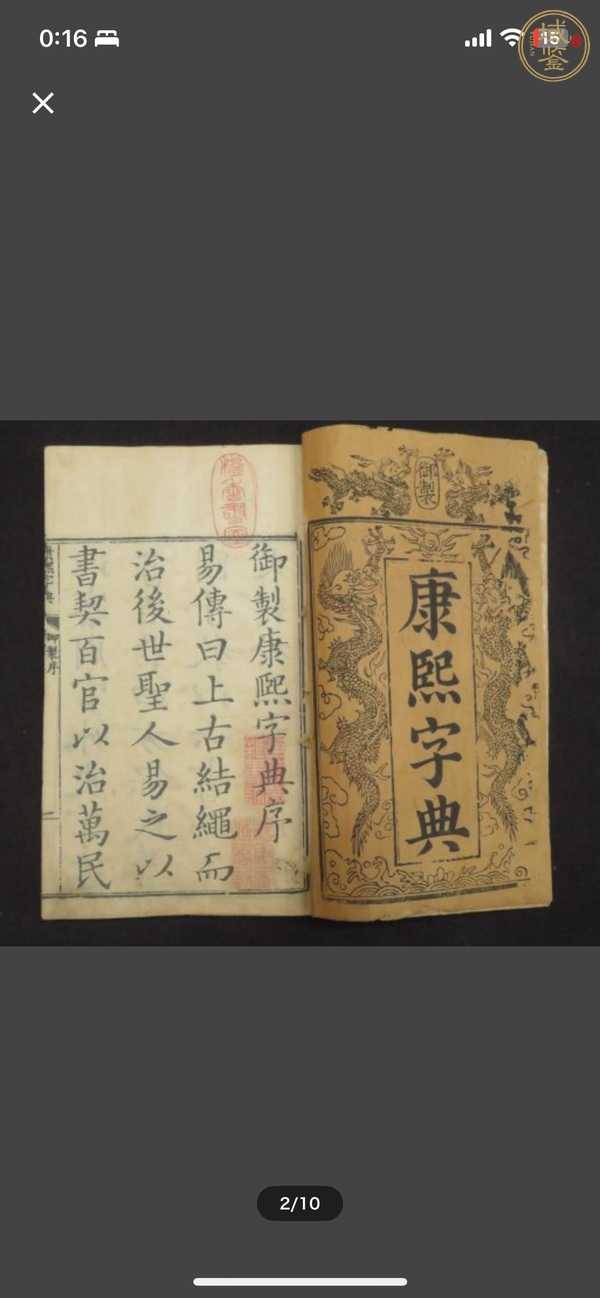 0:16
15
域鉴
御製
康熙字典
御製康熙字典序
易傳曰上古結繩而
治後世聖人易之以
書契百官以治萬民
康熙字典
御製序
一
2/10